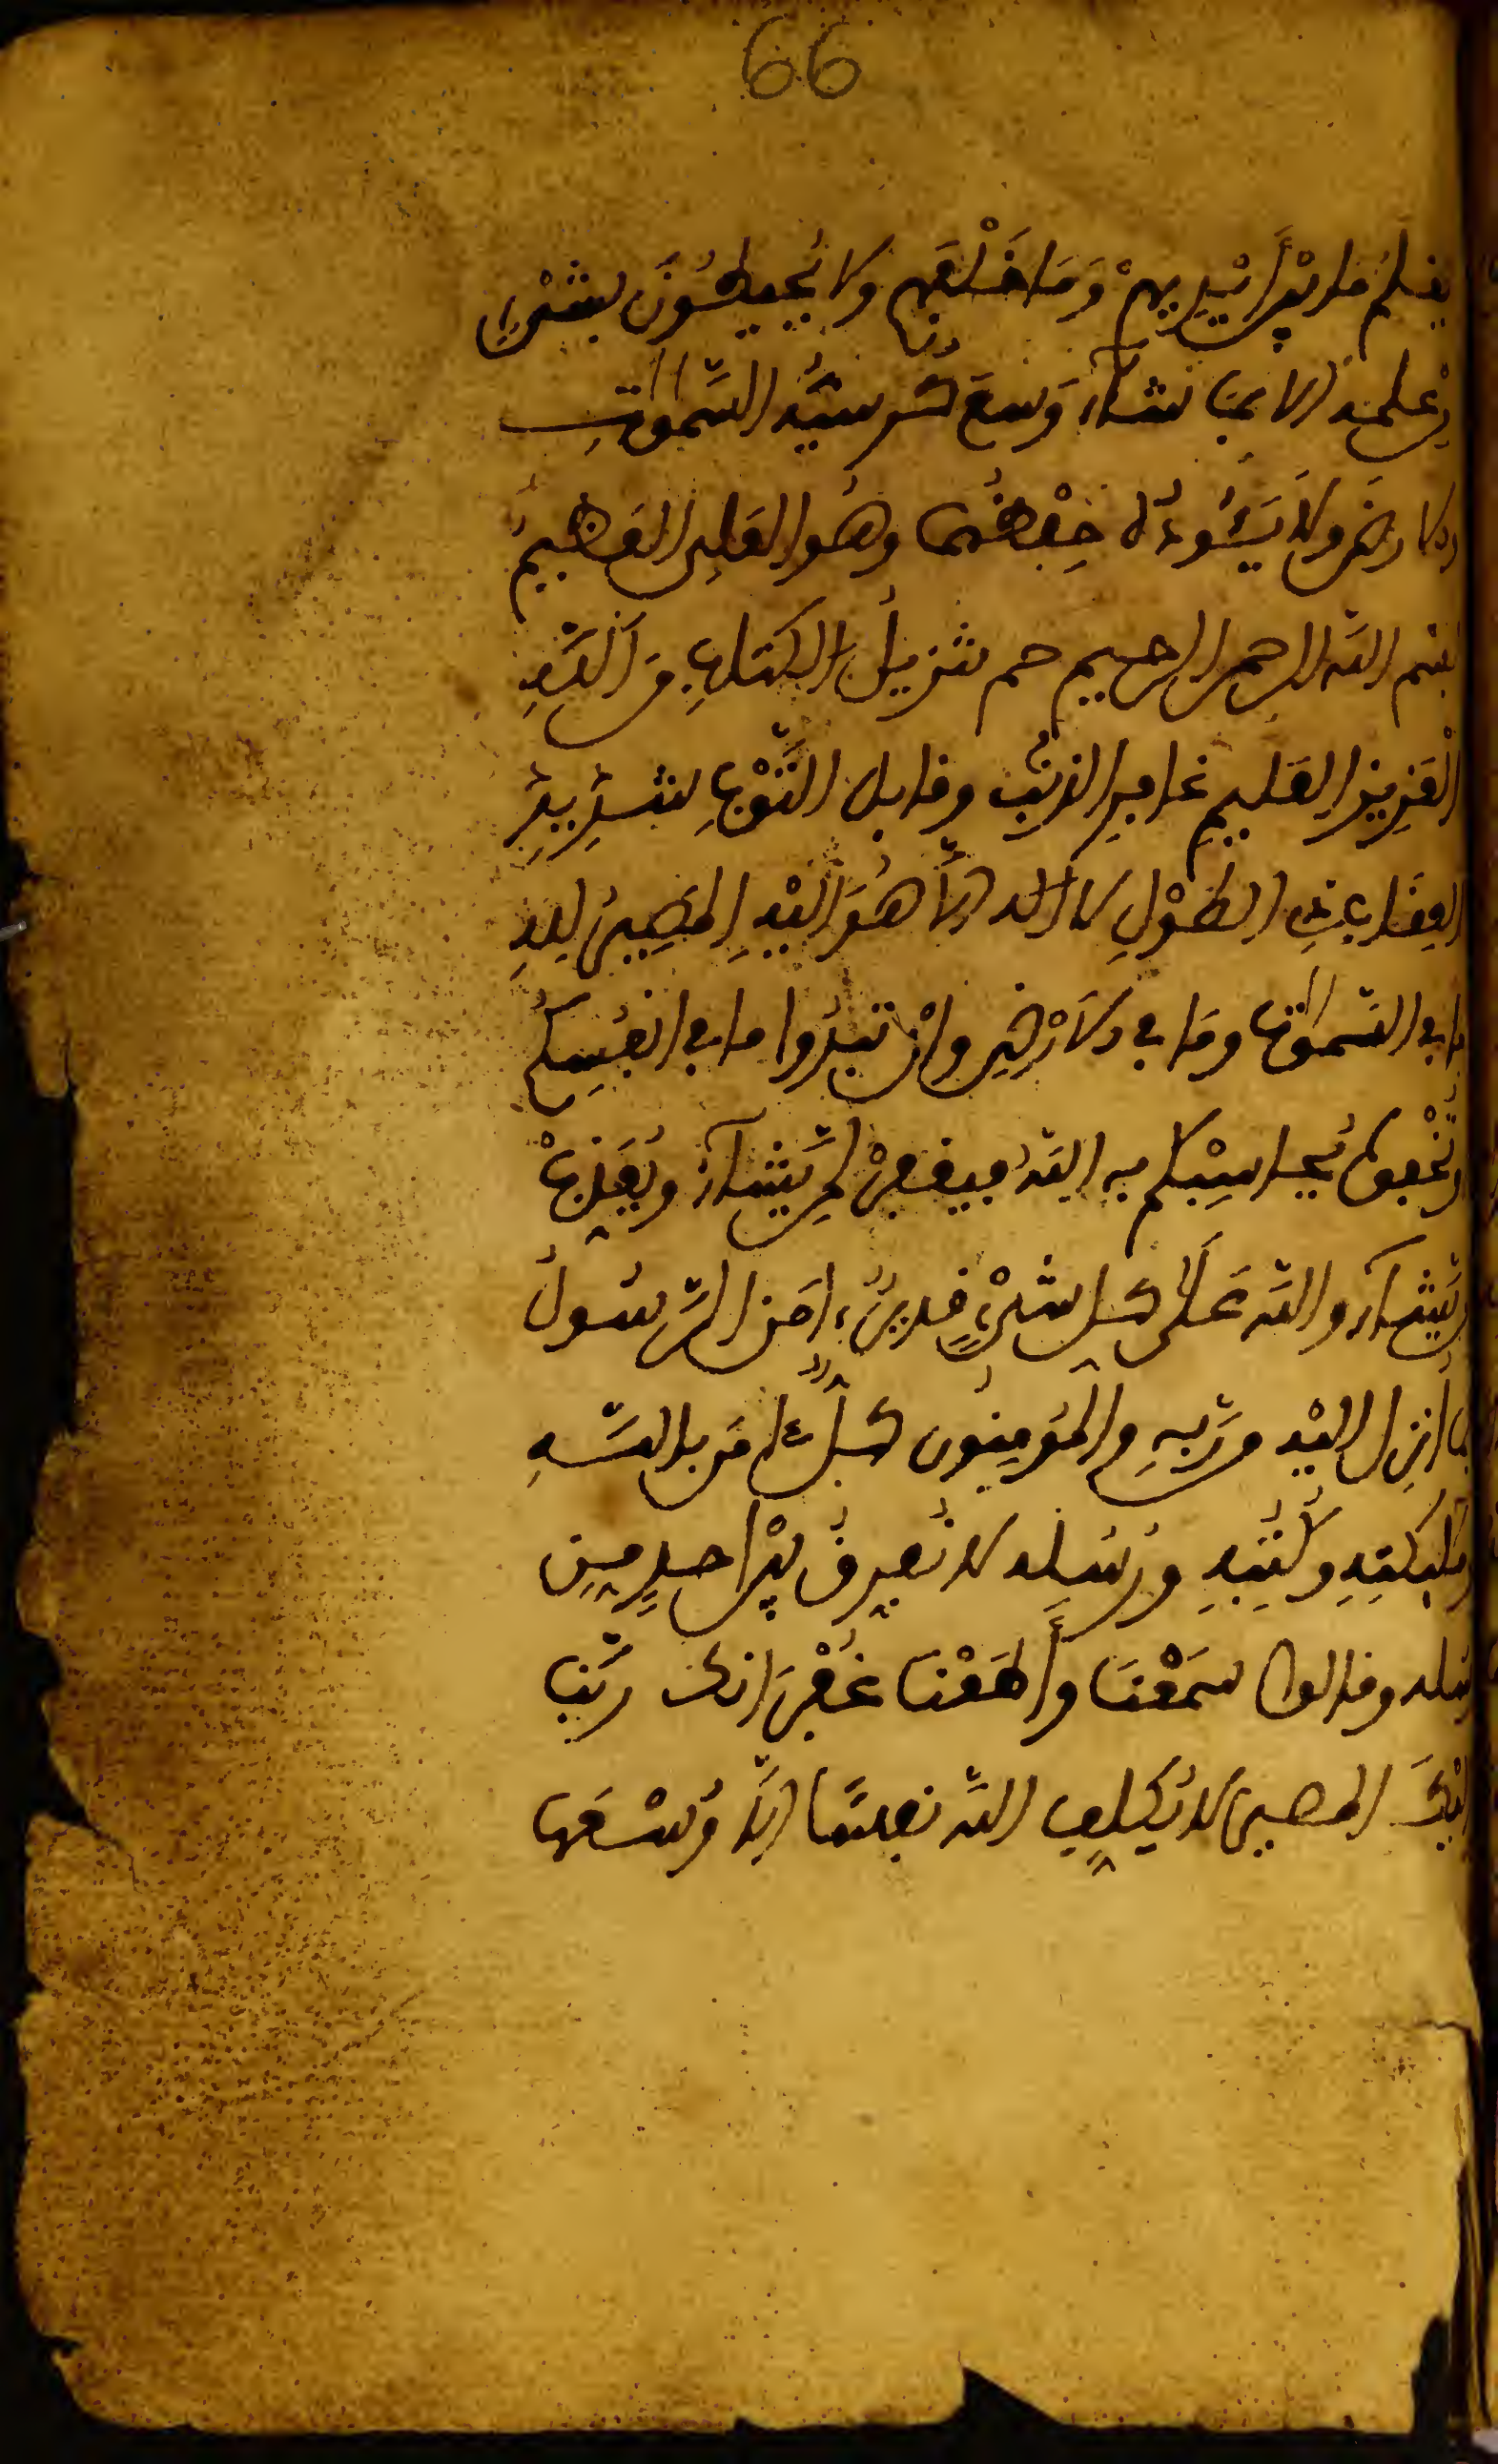 66
يعلم ما بين أيديهم وَمَا خَلْفَهم ولا يُحيطُونَ بشيء
من علمه الا بما شآء وَسعَ كُرسيُّه السَّموٰتِ
والارض ولا يَئُودُه حِفْظُهُما وهُو العَلِى العَظيمُ
بسم الله الرحمن الرحيم حم تنزيلُ الكتابِ من اللَّهِ
الْعَزيز العَليمِ غافِرِ الذنبِ وقابل التَّوْبِ شَدِيدِ
العِقَاب ذِى الطَوْلِ لا اله الَّا هُوَ اليْهِ المَصِيرُ لِلهِ
ما في السَّموٰت ومَا في الاَرْضِ وانْ تبدُوا ما في انفُسِكُم
أو تُخْفوه يُحاسِبْكم به اللَّهُ فيغفرْ لِمن يَّشآءُ ويُعَذِّبْ
من يَّشآء واللَّه عَلَى كل شىْءٍ قديرٌ ءامَن الرَّسُولُ
بما أُنزِل اليْه من رَّبِهِ والمُؤمِنُون كُلٌّ ءامَن باللَّهِ
وملٰئكتِهِ وكُتُبِهِ ورُسُلِه لا نُفرِقُ بيْن احدٍ مِن
رُسله وقالوا سَمِعْنَا وأَطَعْنَا غُفْرَانك ربَّنا
واليْكَ المصير لا يُكَلِف اللَّه نفسًا اِلَّا وُسْعَها